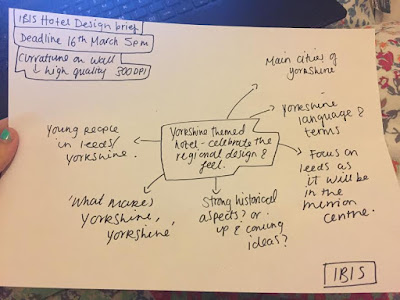 IBIS Hotel Design brief
Deadline 16th March 5pm
Curvature on wall
↳ high quality 300DPI
Main cities of
Yorkshire
Yorkshire
language &
terms
Young people
in Leeds/
Yorkshire.
Yorkshire themed
hotel - celebrate the
regional design &
feel.
Focus on
Leeds as
it will be
in the
merrion
centre.
'What makes
Yorkshire,
Yorkshire'
Strong historical
aspects? or
up & coming
ideas?
IBIS